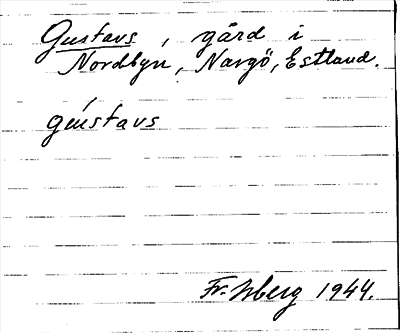 Gustavs, gård i
Nordbyn, Nargö, Estland.
gústavs
Fr. Isberg 1944.